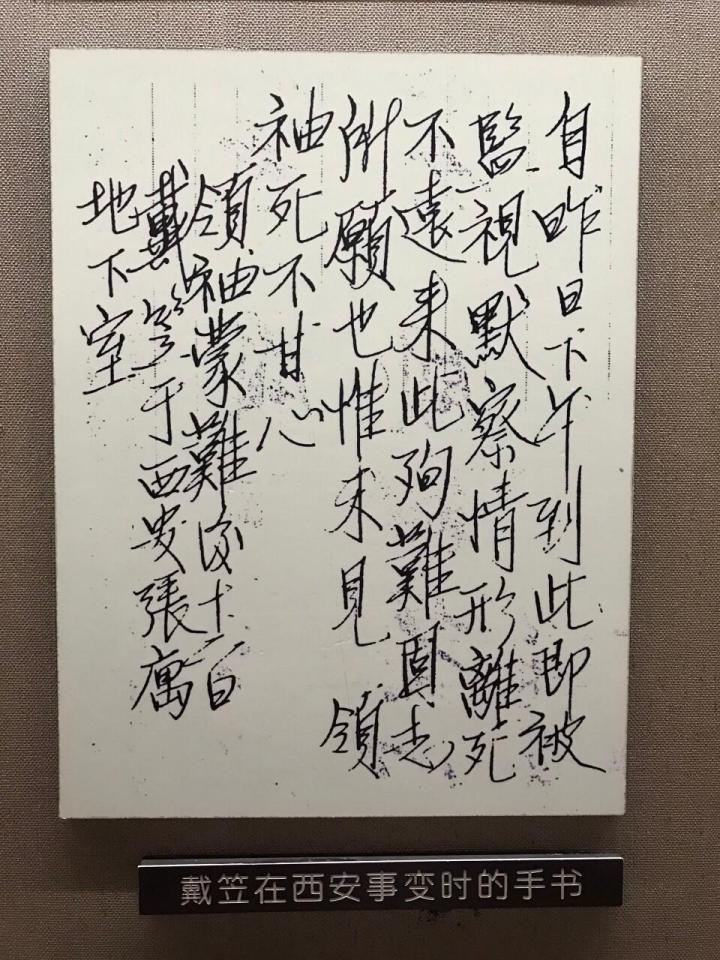 自昨日下午到此即被
監視默察情形離死
不遠来此殉難固志
所願也惟未見 領
袖死不甘心
領袖蒙難後十二日
戴笠于西安張寓
地下室
戴笠在西安事变时的手书